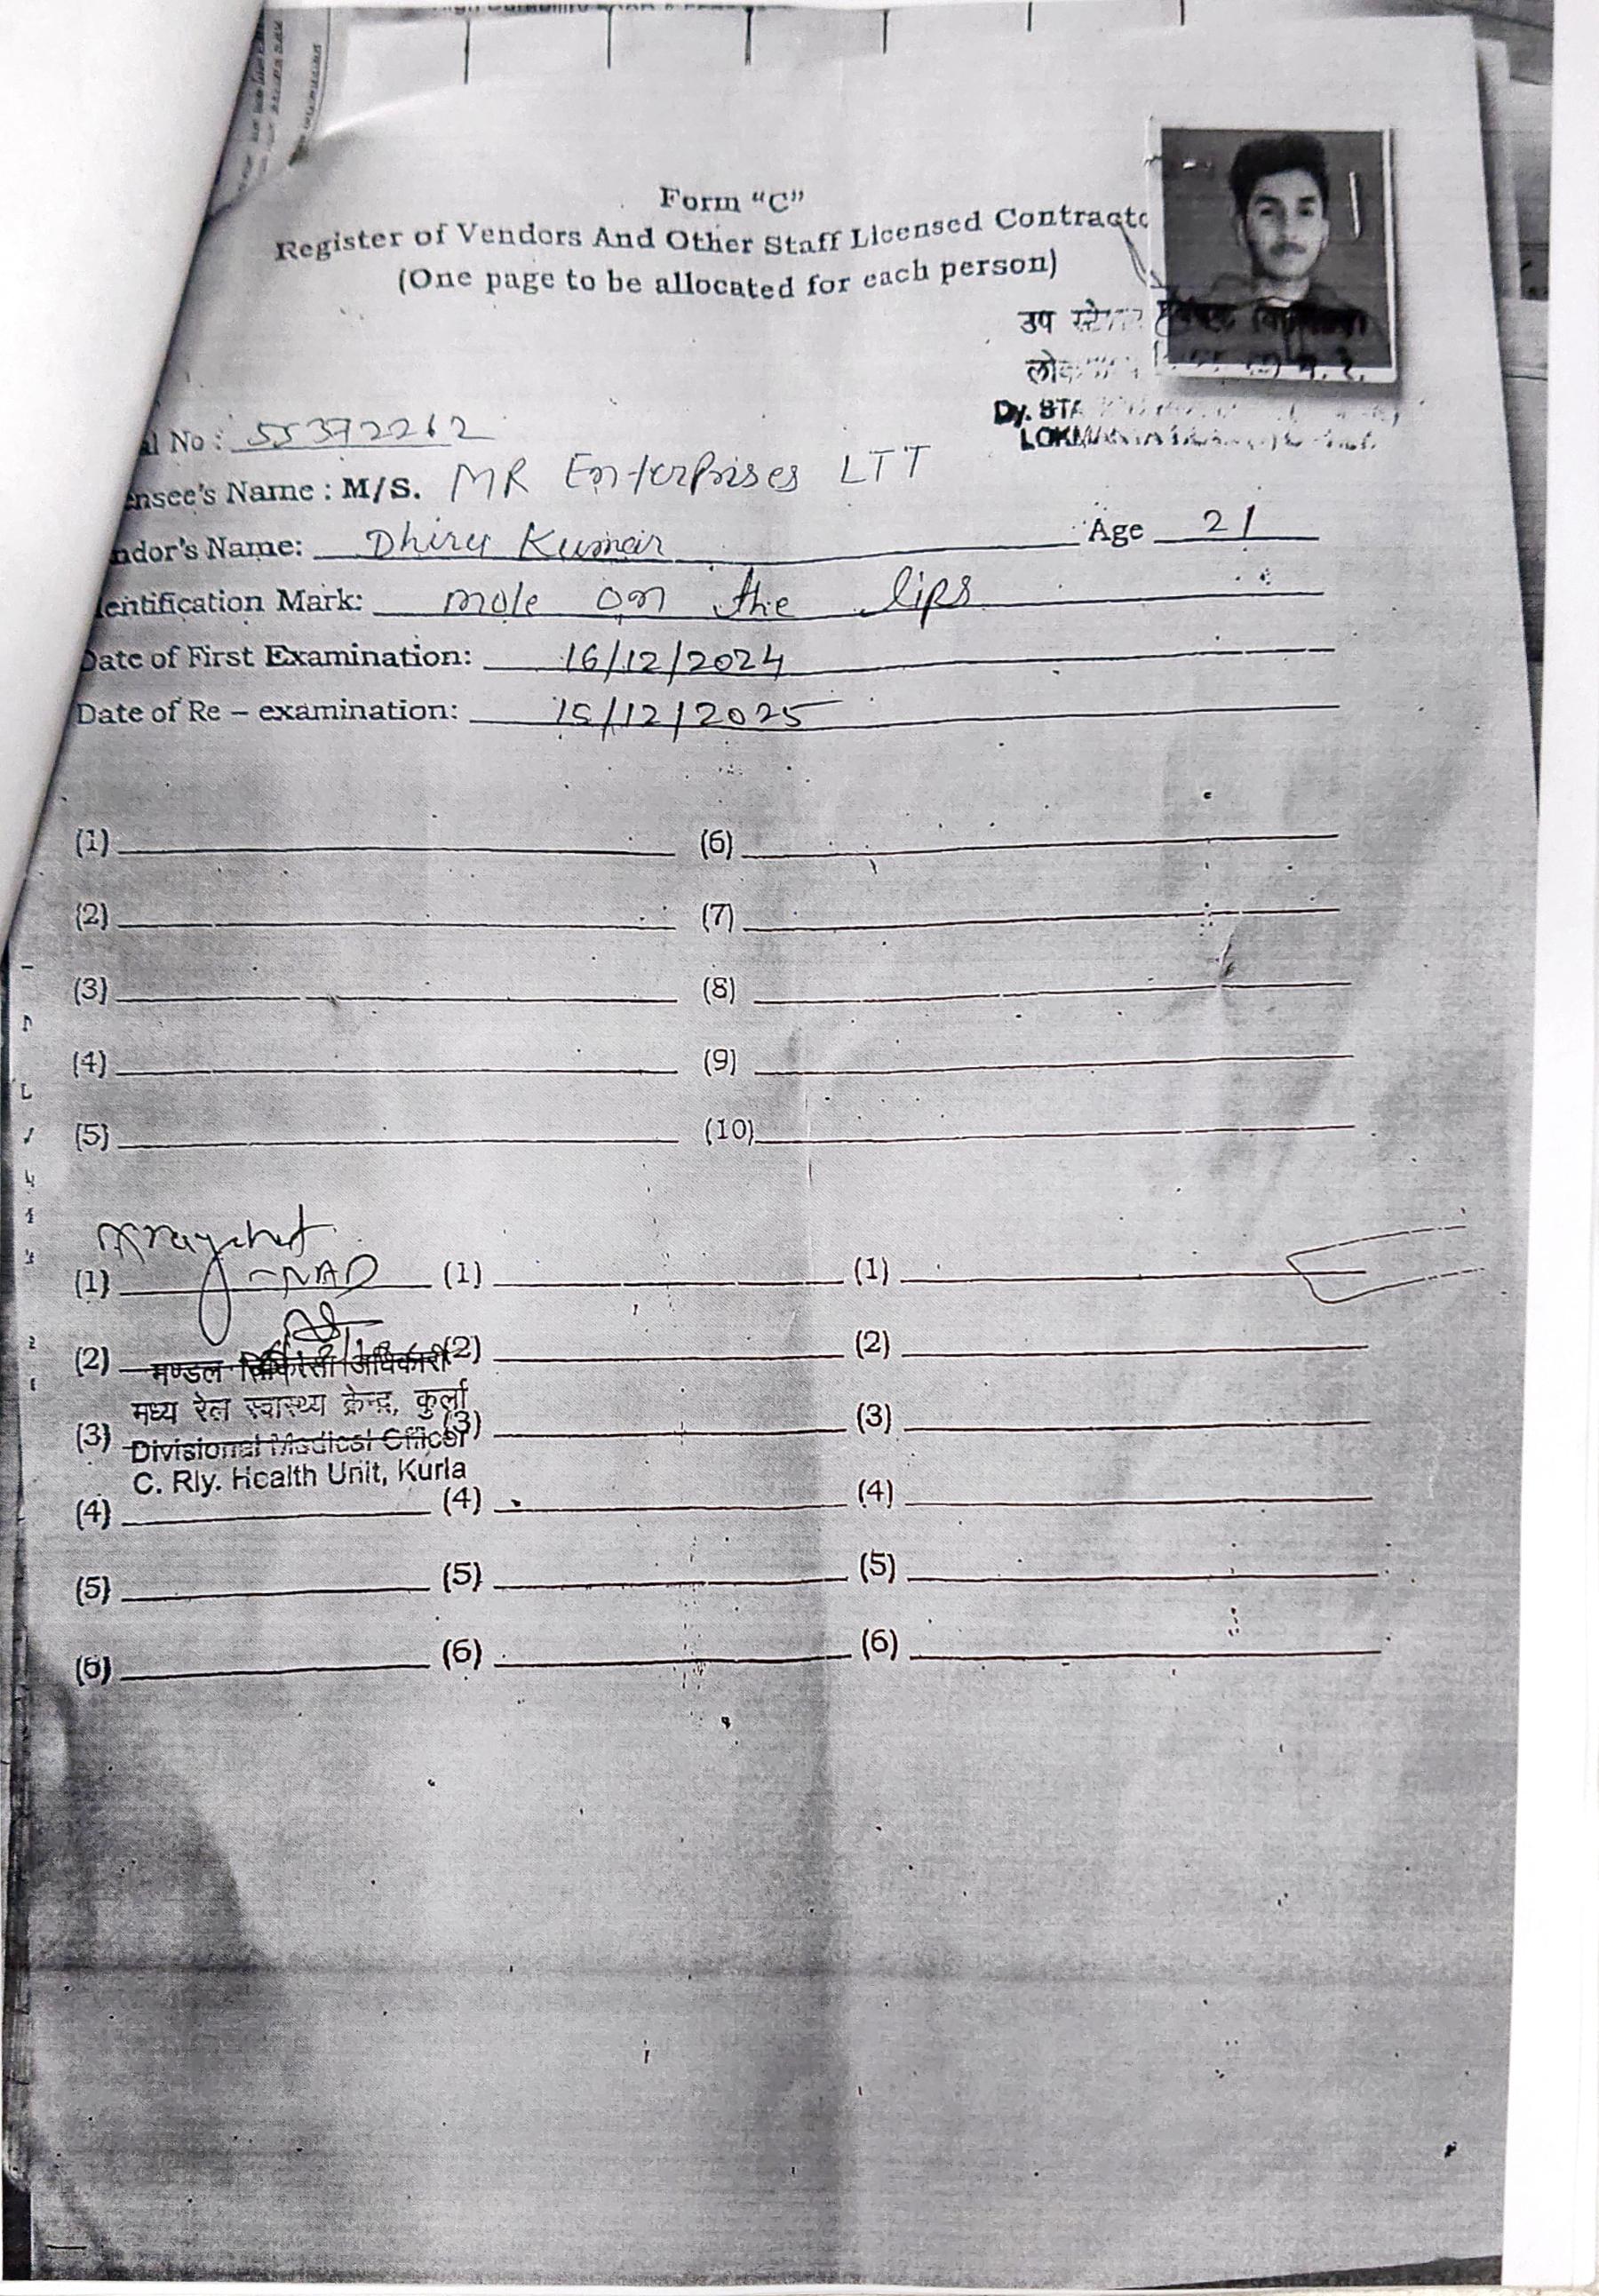 Form "C"
Register of Vendors And Other Staff Licensed Contracto
(One page to be allocated for each person)
उप
Dy. STA
al No : 55372262
ensee's Name : M/S. MR Enterprises LTT
ndor's Name: Dhiru Kumar Age 21
entification Mark: mole on the lips
Date of First Examination: 16/12/2024
Date of Re – examination: 15/12/2025
(1) (6)
(2) (7)
(3) (8)
(4) (9)
(5) (10)
(1) NAD (1) (1)
(2) मण्डल चिकित्सा अधिकारी (2) (2)
मध्य रेल स्वास्थ्य केन्द्र, कुर्ला
(3) Divisional Medical Officer (3) (3)
C. Rly. Health Unit, Kurla
(4) (4) (4)
(5) (5) (5)
(6) (6) (6)